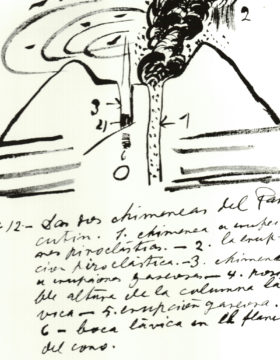 2
3
4
1
12 - Las dos chimeneas del Par
cutin. 1. chimenea a erupcio
nes piroclásticas. - 2. la erup
cion piroclástica. - 3. chimenea
a erupciones gaseosas - 4. posi
ble altura de la columna lá
vica - 5. erupción gaseosa.
6 - boca lávica en el flanc
del cono.